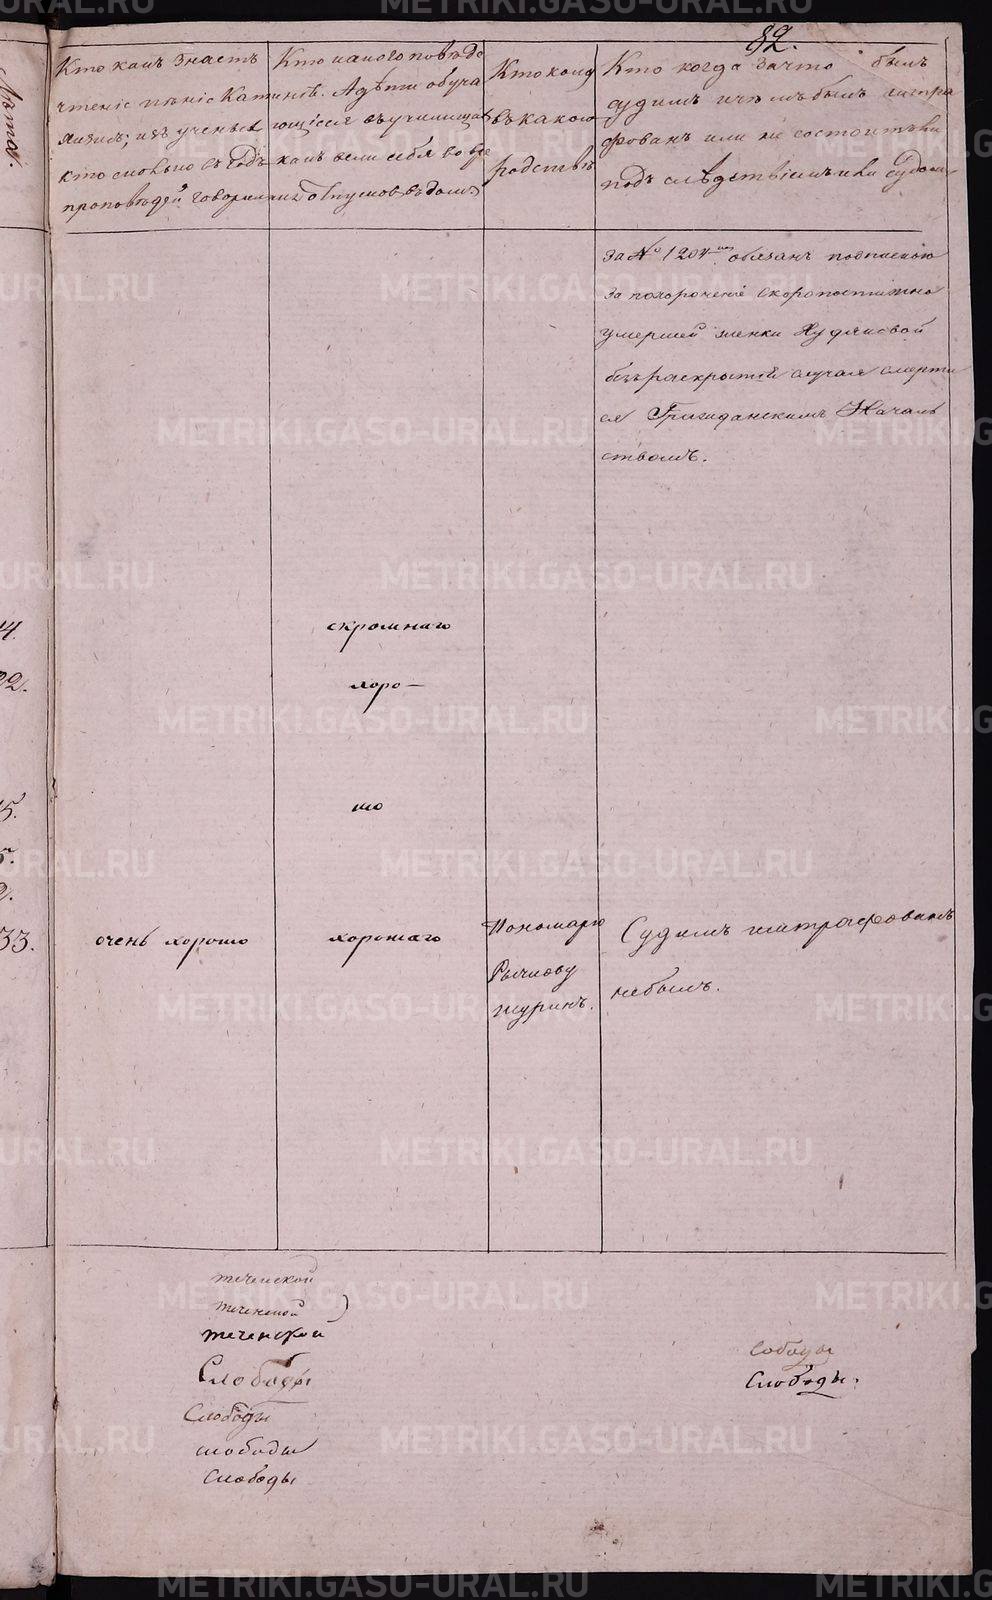 82.
Лѣта.
Кто какъ знаетъ
чтенiе пѣнiе Катих
изисъ; изъ ученыхъ
кто сколько въ годъ
проповѣдей говорилъ
Кто какого поведе
нiя. А дѣти обуча
ющiеся въ училищахъ
какъ вели себя во вре
мя отпусковъ въ домъ
Кто кому
въ какомъ
родствѣ
Кто когда за что былъ
судимъ и чѣмъ былъ штра
фованъ или не состоитъ ли
подъ слѣдствiемъ или судомъ
за № 1204мъ обязанъ подпискою
за похороненiе скоропостижно
умершей женки Худяковой
безъ раскрытiя случая смерти
ея Гражданскимъ Началь
ствомъ.
4.
22.
скромнаго
хоро—
шо
5.
5.
2.
33.
очень хорошо
хорошаго
Пономарю
Рычкову
шуринъ.
Судимъ и штрафованъ
не былъ.
теченской
теченской )
теченской
Слободы
Слободы
слободы
Слободы
Собады
Слободы.
METRIKI.GASO-URAL.RU